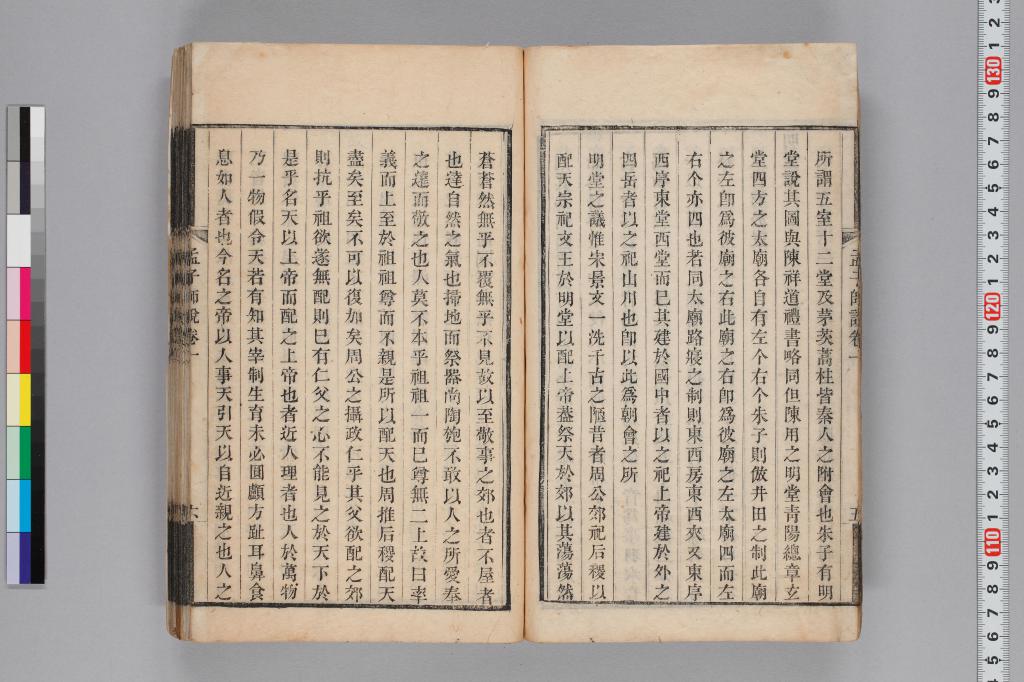 所謂五室十二堂及茅茨蒿桂皆秦人之附會也朱子有明
堂說其圖與陳祥道禮書略同但陳用之明堂青陽總章玄
堂四方之太廟各自有左个右个朱子則倣井田之制此廟
之左卽爲彼廟之右此廟之右卽爲彼廟之左太廟四而左
右个亦四也若同太廟路寢之制則東西房東西夾又東序
西序東堂西堂而已其建於國中者以之祀上帝建於外之
四岳者以之祀山川也卽以此爲朝會之所
明堂之議惟宋景文一洗千古之陋昔者周公郊祀后稷以
配天宗祀文王於明堂以配上帝葢祭天於郊以其蕩蕩然
孟子師說卷一
五
蒼蒼然無乎不覆無乎不見故以至敬事之郊也者不屋者
也達自然之氣也掃地而祭器尚陶匏不敢以人之所愛奉
之遠而敬之也人莫不本乎祖祖一而已尊無二上故曰率
義而上至於祖祖尊而不親是所以配天也周推后稷配天
盡矣至矣不可以復加矣周公之攝政仁乎其父欲配之郊
則抗乎祖欲遂無配則已有仁父之心不能見之於天下於
是乎名天以上帝而配之上帝也者近人理者也人於萬物
乃一物假令天若有知其宰制生育未必圓顱方趾耳鼻食
息如人者也今名之帝以人事天引天以自近親之也人之
孟子師說卷一
六